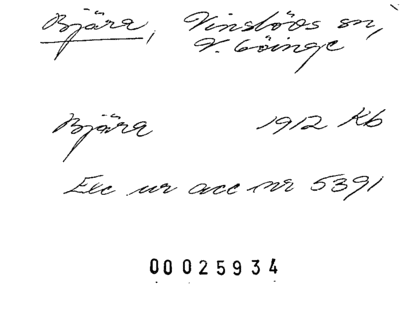 Bjära, Vinslövs sn,
V. Göinge
Bjära 1912 Kb
Exc ur acc nr 5391
00025934